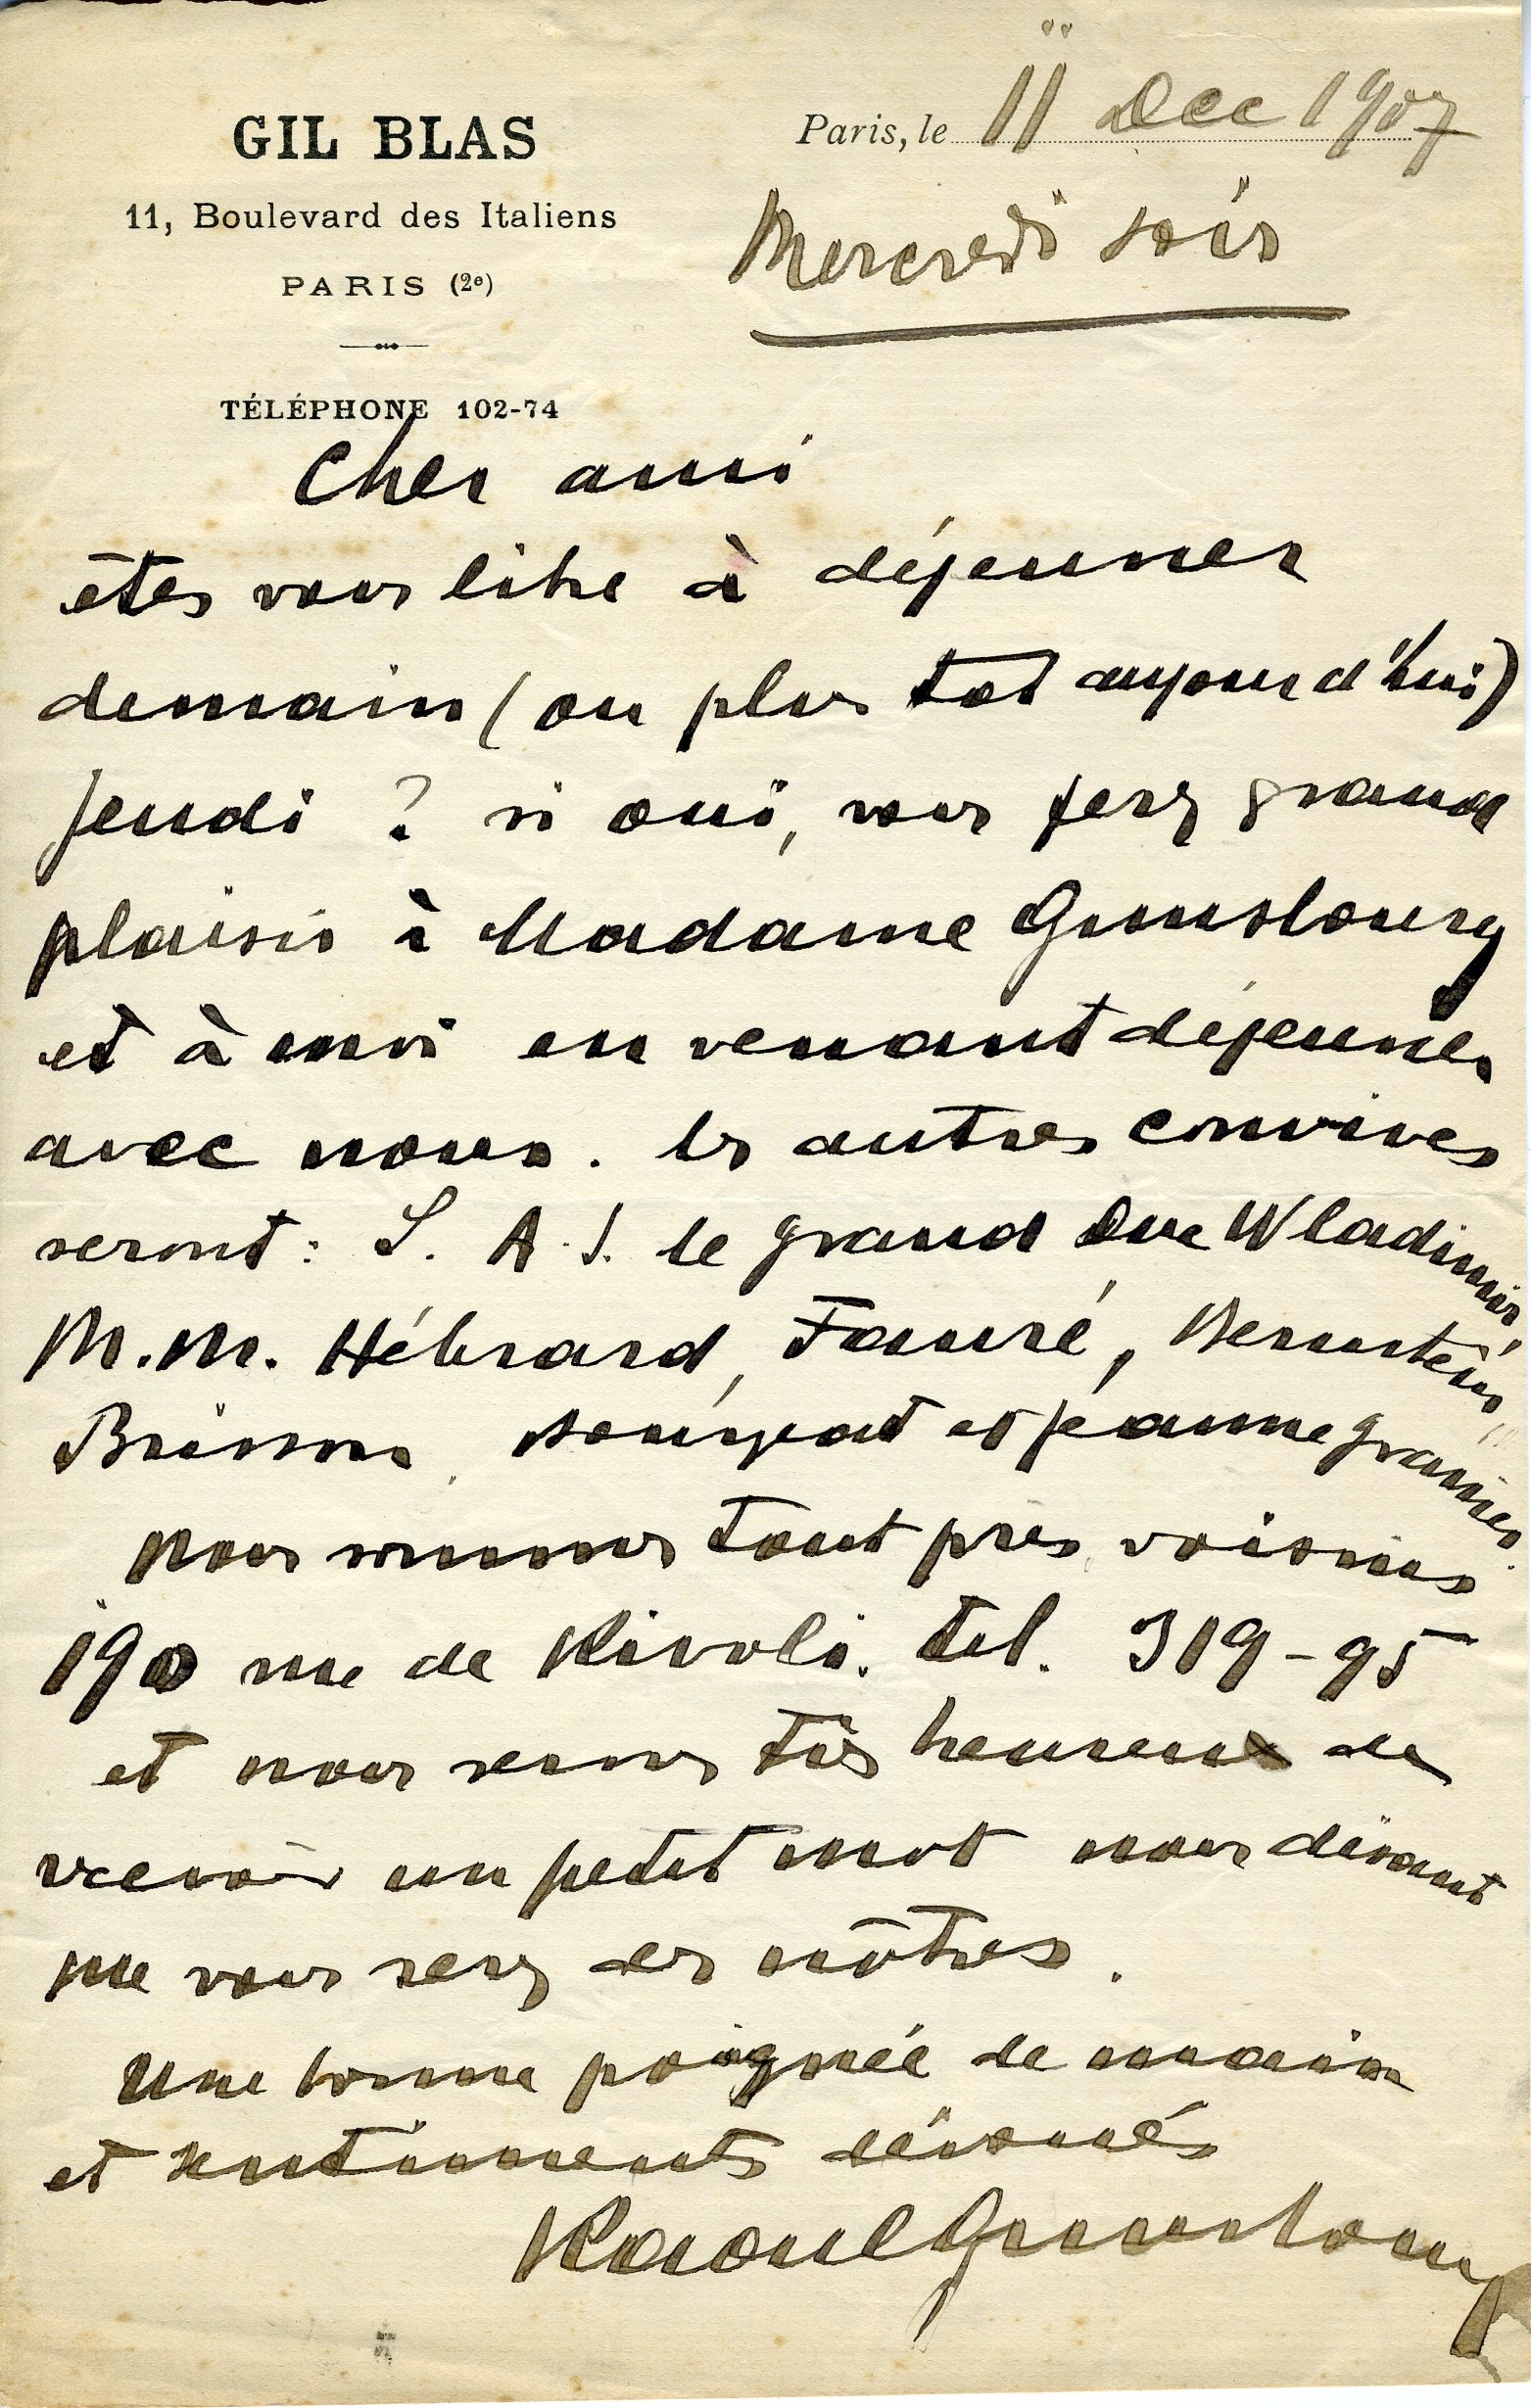 GIL BLAS
11, Boulevard des Italiens
PARIS (2e)
TÉLÉPHONE 102-74
Paris, le 11 Dec 1907
Mercredi soir
Cher ami
êtes vous libre à déjeuner
demain (ou plus tot aujourd'hui)
jeudi ? si oui, vous ferez grand
plaisir à Madame Gunsbourg
et à moi en venant déjeuner
avec nous. les autres convives
seront : S. A. I. le grand Duc Wladimir,
M. M. Hébrard, Fauré, Bernstein,
Brisson, et Jeanne Granier.
Nous sommes tout pres voisins
190 rue de Rivoli. tel. 319-95
et nous serons très heureux de
recevoir un petit mot nous disant
que vous serez des nôtres.
Une bonne poignée de main
et sentiments dévoués
Raoul Gunsbourg